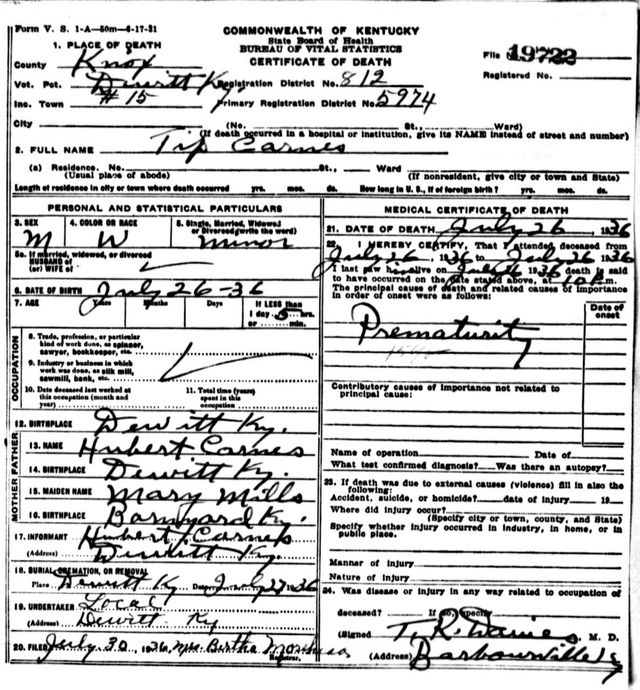 Form V. S. 1-A—50m—6-17-31
COMMONWEALTH OF KENTUCKY
State Board of Health
BUREAU OF VITAL STATISTICS
CERTIFICATE OF DEATH
File 19722
Registered No.
1. PLACE OF DEATH
County Knox
Vot. Pct. Dewitt Ky. Registration District No. 812
Inc. Town #15 Primary Registration District No. 5974
City (No. St., Ward)
(If death occurred in a hospital or institution, give its NAME instead of street and number)
2. FULL NAME Tip Carnes
(a) Residence. No. St., Ward
(Usual place of abode) (If nonresident, give city or town and State)
Length of residence in city or town where death occurred yrs. mos. ds. How long in U. S., if of foreign birth? yrs. mos. ds.
PERSONAL AND STATISTICAL PARTICULARS
3. SEX 4. COLOR OR RACE 5. Single, Married, Widowed or Divorced (write the word)
M W minor
5a. If married, widowed, or divorced
HUSBAND of
(or) WIFE of
6. DATE OF BIRTH July 26-36
7. AGE Years Months Days If LESS than
1 day 5 hrs.
or min.
OCCUPATION
8. Trade, profession, or particular
kind of work done, as spinner,
sawyer, bookkeeper, etc.
9. Industry or business in which
work was done, as silk mill,
sawmill, bank, etc.
10. Date deceased last worked at
this occupation (month and
year)
11. Total time (years)
spent in this
occupation
12. BIRTHPLACE Dewitt Ky.
FATHER
13. NAME Hubert Carnes
14. BIRTHPLACE Dewitt Ky.
MOTHER
15. MAIDEN NAME Mary Mills
16. BIRTHPLACE Barnyard Ky.
17. INFORMANT Hubert Carnes
(Address) Dewitt Ky.
18. BURIAL, CREMATION, OR REMOVAL
Place Dewitt Ky Date July 27 1936
19. UNDERTAKER Local
(Address) Dewitt Ky
20. FILED July 30, 1936 Mrs. Bertha
Registrar.
MEDICAL CERTIFICATE OF DEATH
21. DATE OF DEATH July 26 1936
22. I HEREBY CERTIFY, That I attended deceased from
July 26, 1936 to July 26 1936
I last saw him alive on July 26 1936 death is said
to have occurred on the date stated above, at 10 P.m.
The principal cause of death and related causes of importance
in order of onset were as follows:
Date of
onset
Prematurity
Contributory causes of importance not related to
principal cause:
Name of operation Date of
What test confirmed diagnosis? Was there an autopsy?
23. If death was due to external causes (violence) fill in also the
following:
Accident, suicide, or homicide? date of injury 19
Where did injury occur?
(Specify city or town, county, and State)
Specify whether injury occurred in industry, in home, or in
public place.
Manner of injury
Nature of injury
24. Was disease or injury in any way related to occupation of
deceased? If so, specify
(Signed T. R. Davies M. D.
(Address) Barbourville Ky